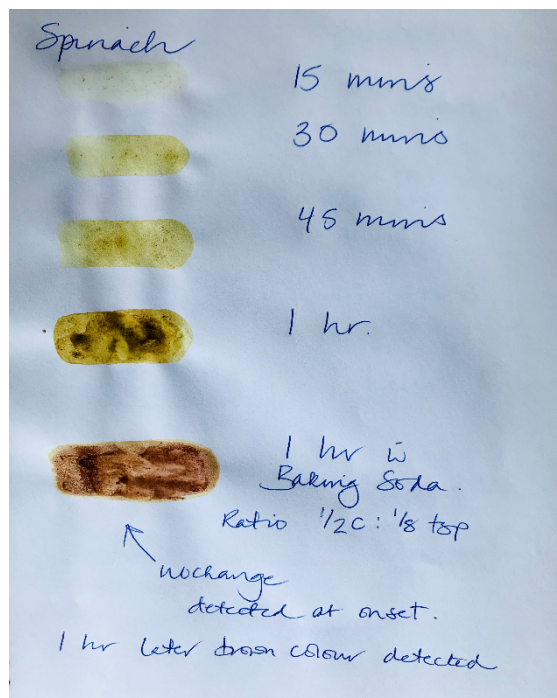 Spinach
15 mins
30 mins
45 mins
1 hr.
1 hr w
Baking Soda.
Ratio 1/2 C : 1/8 tsp
no change
detected at onset.
1 hr later brown colour detected